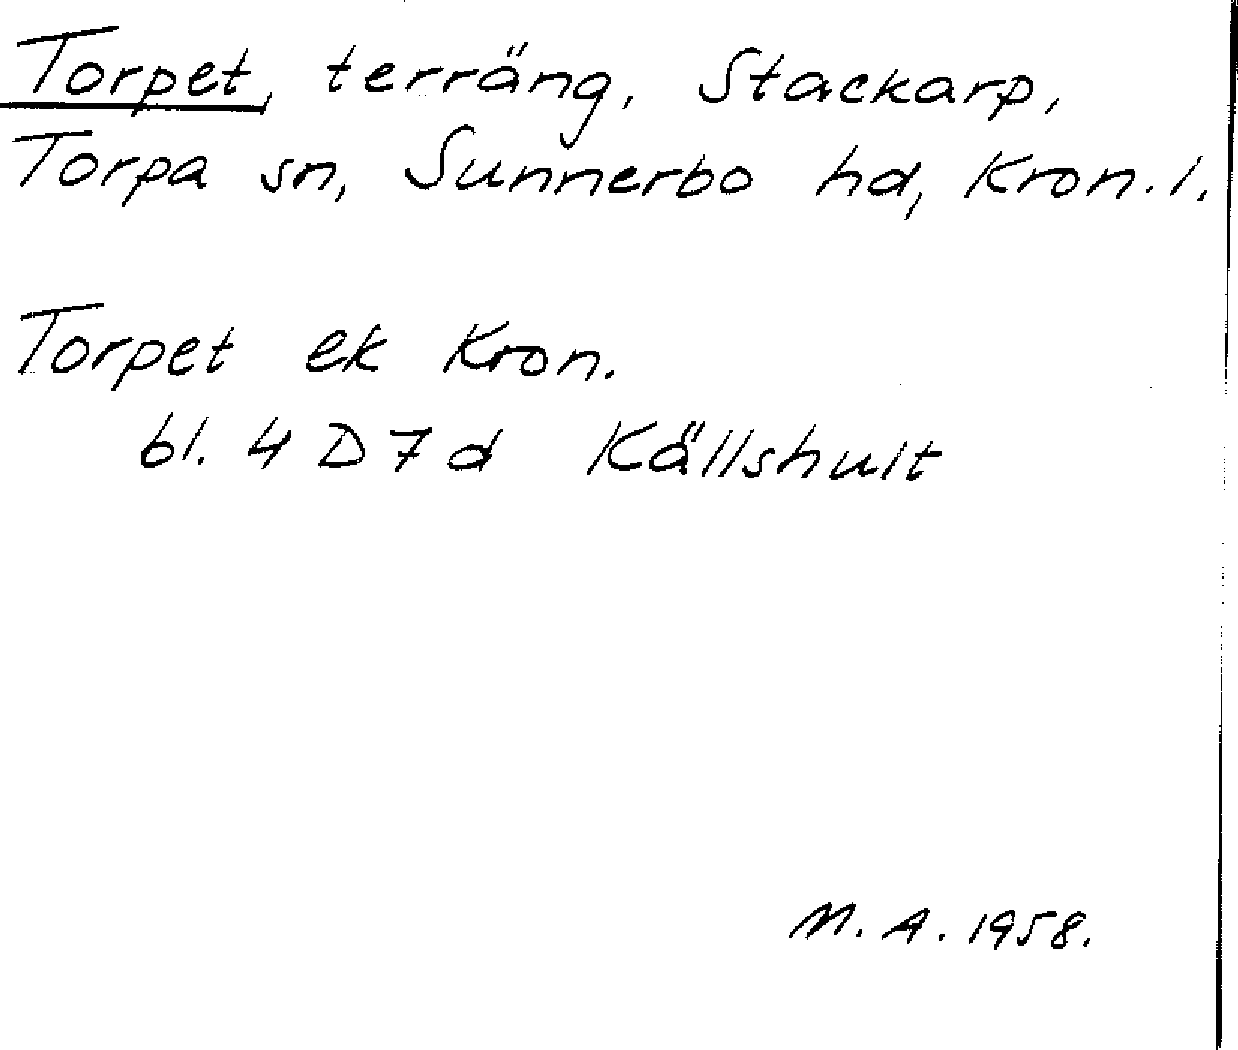 Torpet, terräng, Stackarp,
Torpa sn, Sunnerbo hd, Kron. l.
Torpet ek Kron.
bl. 4 D 7 d Källshult
M. A. 1958.